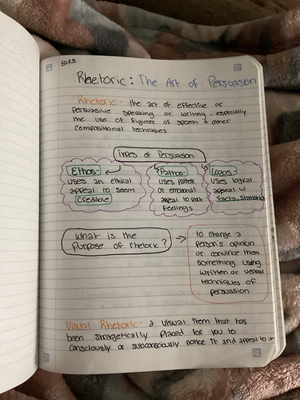 Rhetoric: The Art of Persuasion
Rhetoric - the art of effective or
persuasive speaking or writing, especially
the use of figures of speech & other
compositional techniques
Types of Persuasion
Ethos-
uses an ethical
appeal to seem
credible
Pathos-
uses
an emotional
appeal to
feelings
Logos-
uses logical
appeal w
facts,
What is the
Purpose of rhetoric?
to change a
person's opinion
or convince them
something using
written or verbal
techniques of
persuasion
Visual Rhetoric- a visual item that has
been strategically placed for you to
consciously or subconsciously notice it and appeal to it